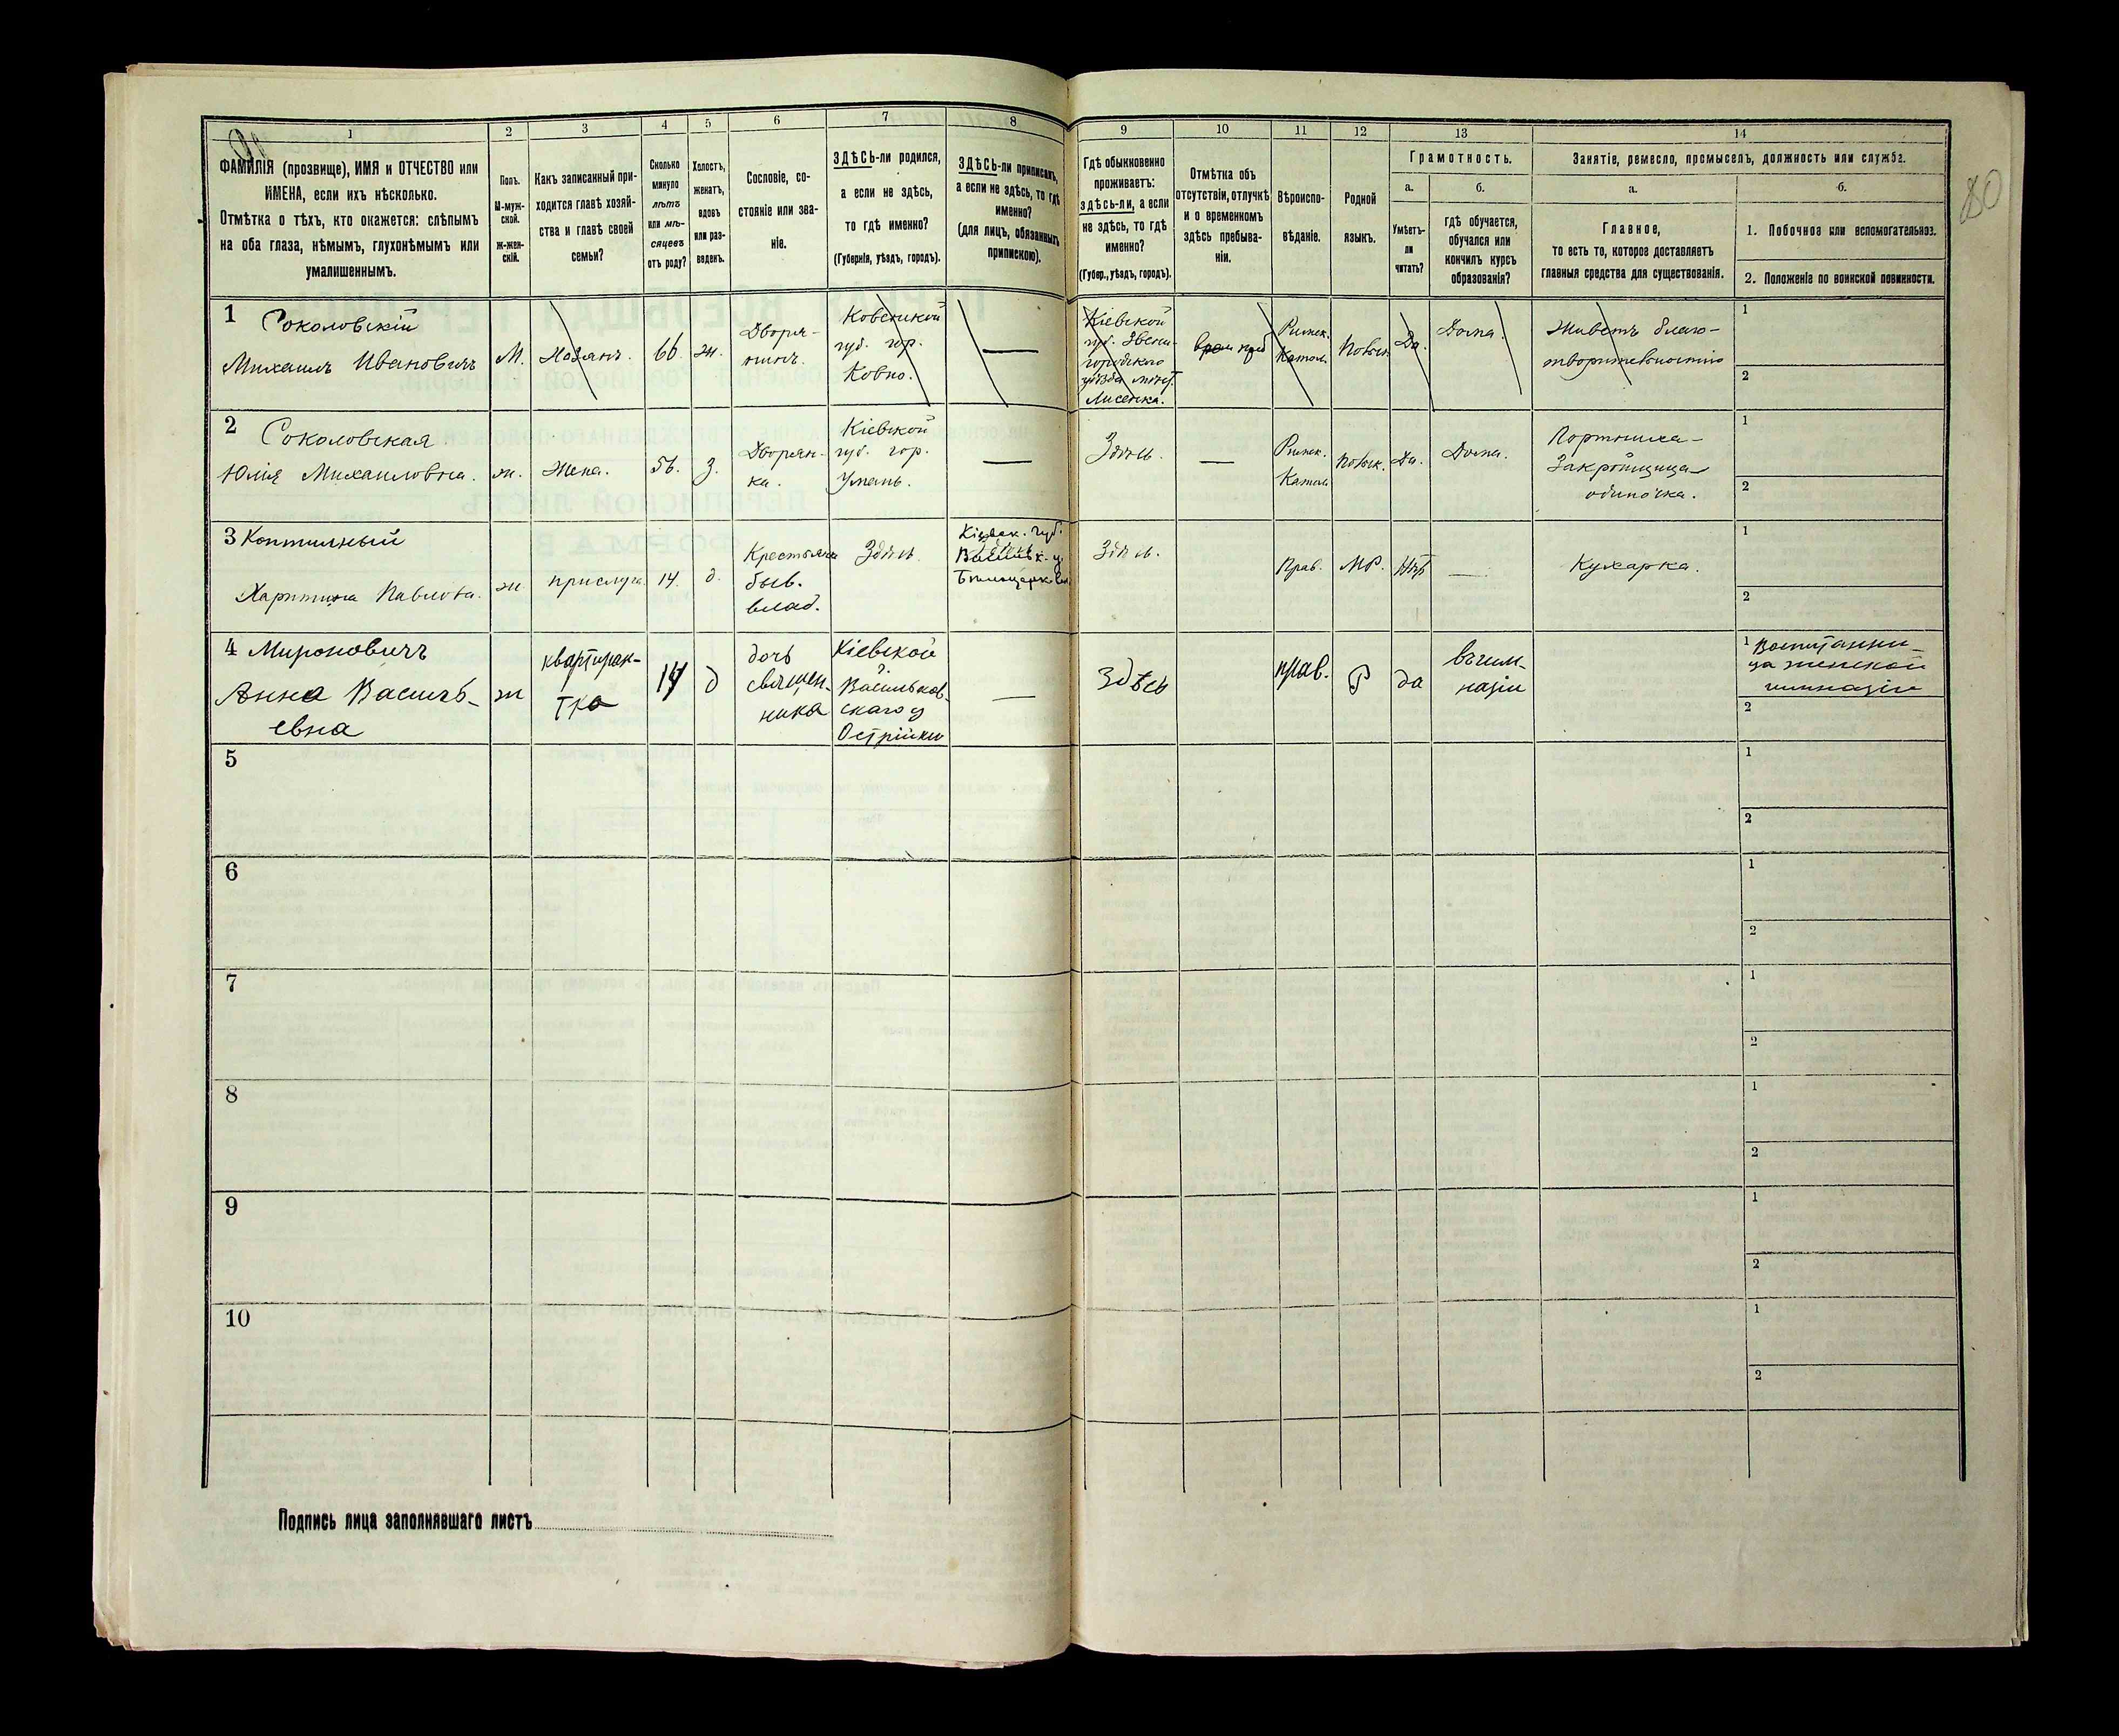 80
1 2 3 4 5 6 7 8 9 10 11 12 13 14
ФАМИЛІЯ (прозвище), ИМЯ и ОТЧЕСТВО или
ИМЕНА, если ихъ нѣсколько.
Отмѣтка о тѣхъ, кто окажется: слѣпымъ
на оба глаза, нѣмымъ, глухонѣмымъ или
умалишеннымъ.
Полъ.
М-муж-
ской.
Ж-жен-
скій.
Какъ записанный при-
ходится главѣ хозяй-
ства и главѣ своей
семьи?
Сколько
минуло
лѣтъ
или мѣ-
сяцевъ
отъ роду?
Холостъ,
женатъ,
вдовъ
или раз-
веденъ.
Сословіе, со-
стояніе или зва-
ніе.
ЗДѢСЬ-ли родился,
а если не здѣсь,
то гдѣ именно?
(Губернія, уѣздъ, городъ).
ЗДѢСЬ-ли приписанъ,
а если не здѣсь, то гдѣ
именно?
(для лицъ, обязанныхъ
припискою).
Гдѣ обыкновенно
проживаетъ:
здѣсь-ли, а если
не здѣсь, то гдѣ
именно?
(Губер., уѣздъ, городъ).
Отмѣтка объ
отсутствіи, отлучкѣ
и о временномъ
здѣсь пребыва-
ніи.
Вѣроиспо-
вѣданіе.
Родной
языкъ.
Грамотность.
а.
Умѣетъ-
ли
читать?
б.
гдѣ обучается,
обучался или
кончилъ курсъ
образованія?
Занятіе, ремесло, промыселъ, должность или служба.
а.
Главное,
то есть то, которое доставляетъ
главныя средства для существованія.
б.
1. Побочное или вспомогательное.
2. Положеніе по воинской повинности.
1 Соколовскій
Михаилъ Ивановичъ
М.
Хозяинъ.
66
ж.
Дворя-
нинъ.
Ковенской
губ. гор.
Ковно.
—
Кіевской
губ. Звени-
городскаго
уѣзда мѣст.
Лисенка.
Римск.
Катол.
Польск.
Да.
Дома.
Живетъ благо-
творительностію
1
2
2 Соколовская
Юлія Михаиловна.
ж.
Жена.
56.
З.
Дворян-
ка.
Кіевской
губ. гор.
Умань.
—
Здѣсь.
—
Римск.
Катол.
Польск.
Да.
Дома.
Портниха-
Закройщица
одиночка.
1
2
3 Коптильный
Харитина Павлова.
ж.
прислуга.
14.
д.
Крестьянка
быв.
влад.
Здѣсь
Кіевск. губ.
Васильк. у.
Бѣлоцерков.
Здѣсь.
Прав.
МР.
Нѣт
—
Кухарка.
1
2
4 Мироновичъ
Анна Василь-
евна
ж
квартиран-
тка
14
д
дочь
священ-
ника
Кіевской
г.
Васильков-
скаго у
Острійки
—
Здѣсь
прав.
Р
да
въ гим-
назіи
1 Воспитанни-
ца женской
гимназіи
2
5
1
2
6
1
2
7
1
2
8
1
2
9
1
2
10
1
2
Подпись лица заполнявшаго листъ